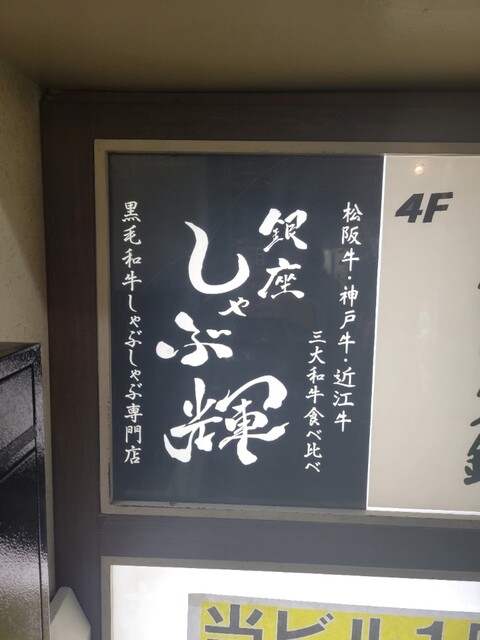 松阪牛・神戸牛・近江牛
三大和牛食べ比べ
銀座
しゃぶ輝
黒毛和牛しゃぶしゃぶ専門店
4F
当ビル1